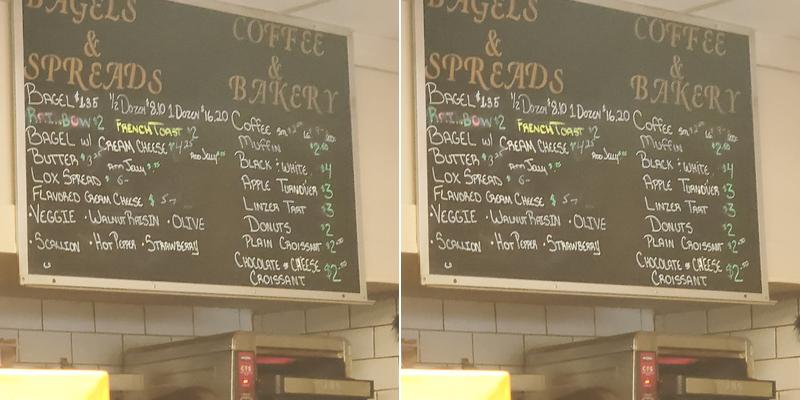 BAGELS
&
SPREADS
BAGEL $1.35 1/2 DOZEN $8.10 1 DOZEN $16.20
RAI..BOW $2 FRENCH TOAST $2
BAGEL W/ CREAM CHEESE $4.25
BUTTER ADD JELLY ADD JELLY
LOX SPREAD $ 6-
FLAVORED CREAM CHEESE $ 5-
·VEGGIE ·WALNUT RAISIN ·OLIVE
·SCALLION ·HOT PEPPER ·STRAWBERRY
COFFEE
&
BAKERY
COFFEE SM
MUFFIN $2.50
BLACK & WHITE $4
APPLE TURNOVER $3
LINZER TART $3
DONUTS $2
PLAIN CROISSANT $2.00
CHOCOLATE OR CHEESE $2
CROISSANT
BAGELS
&
SPREADS
BAGEL $1.35 1/2 DOZEN $8.10 1 DOZEN $16.20
RAI..BOW $2 FRENCH TOAST $2
BAGEL W/ CREAM CHEESE $4.25
BUTTER ADD JELLY ADD JELLY
LOX SPREAD $ 6-
FLAVORED CREAM CHEESE $ 5-
·VEGGIE ·WALNUT RAISIN ·OLIVE
·SCALLION ·HOT PEPPER ·STRAWBERRY
COFFEE
&
BAKERY
COFFEE SM
MUFFIN $2.50
BLACK & WHITE $4
APPLE TURNOVER $3
LINZER TART $3
DONUTS $2
PLAIN CROISSANT $2.00
CHOCOLATE OR CHEESE $2
CROISSANT